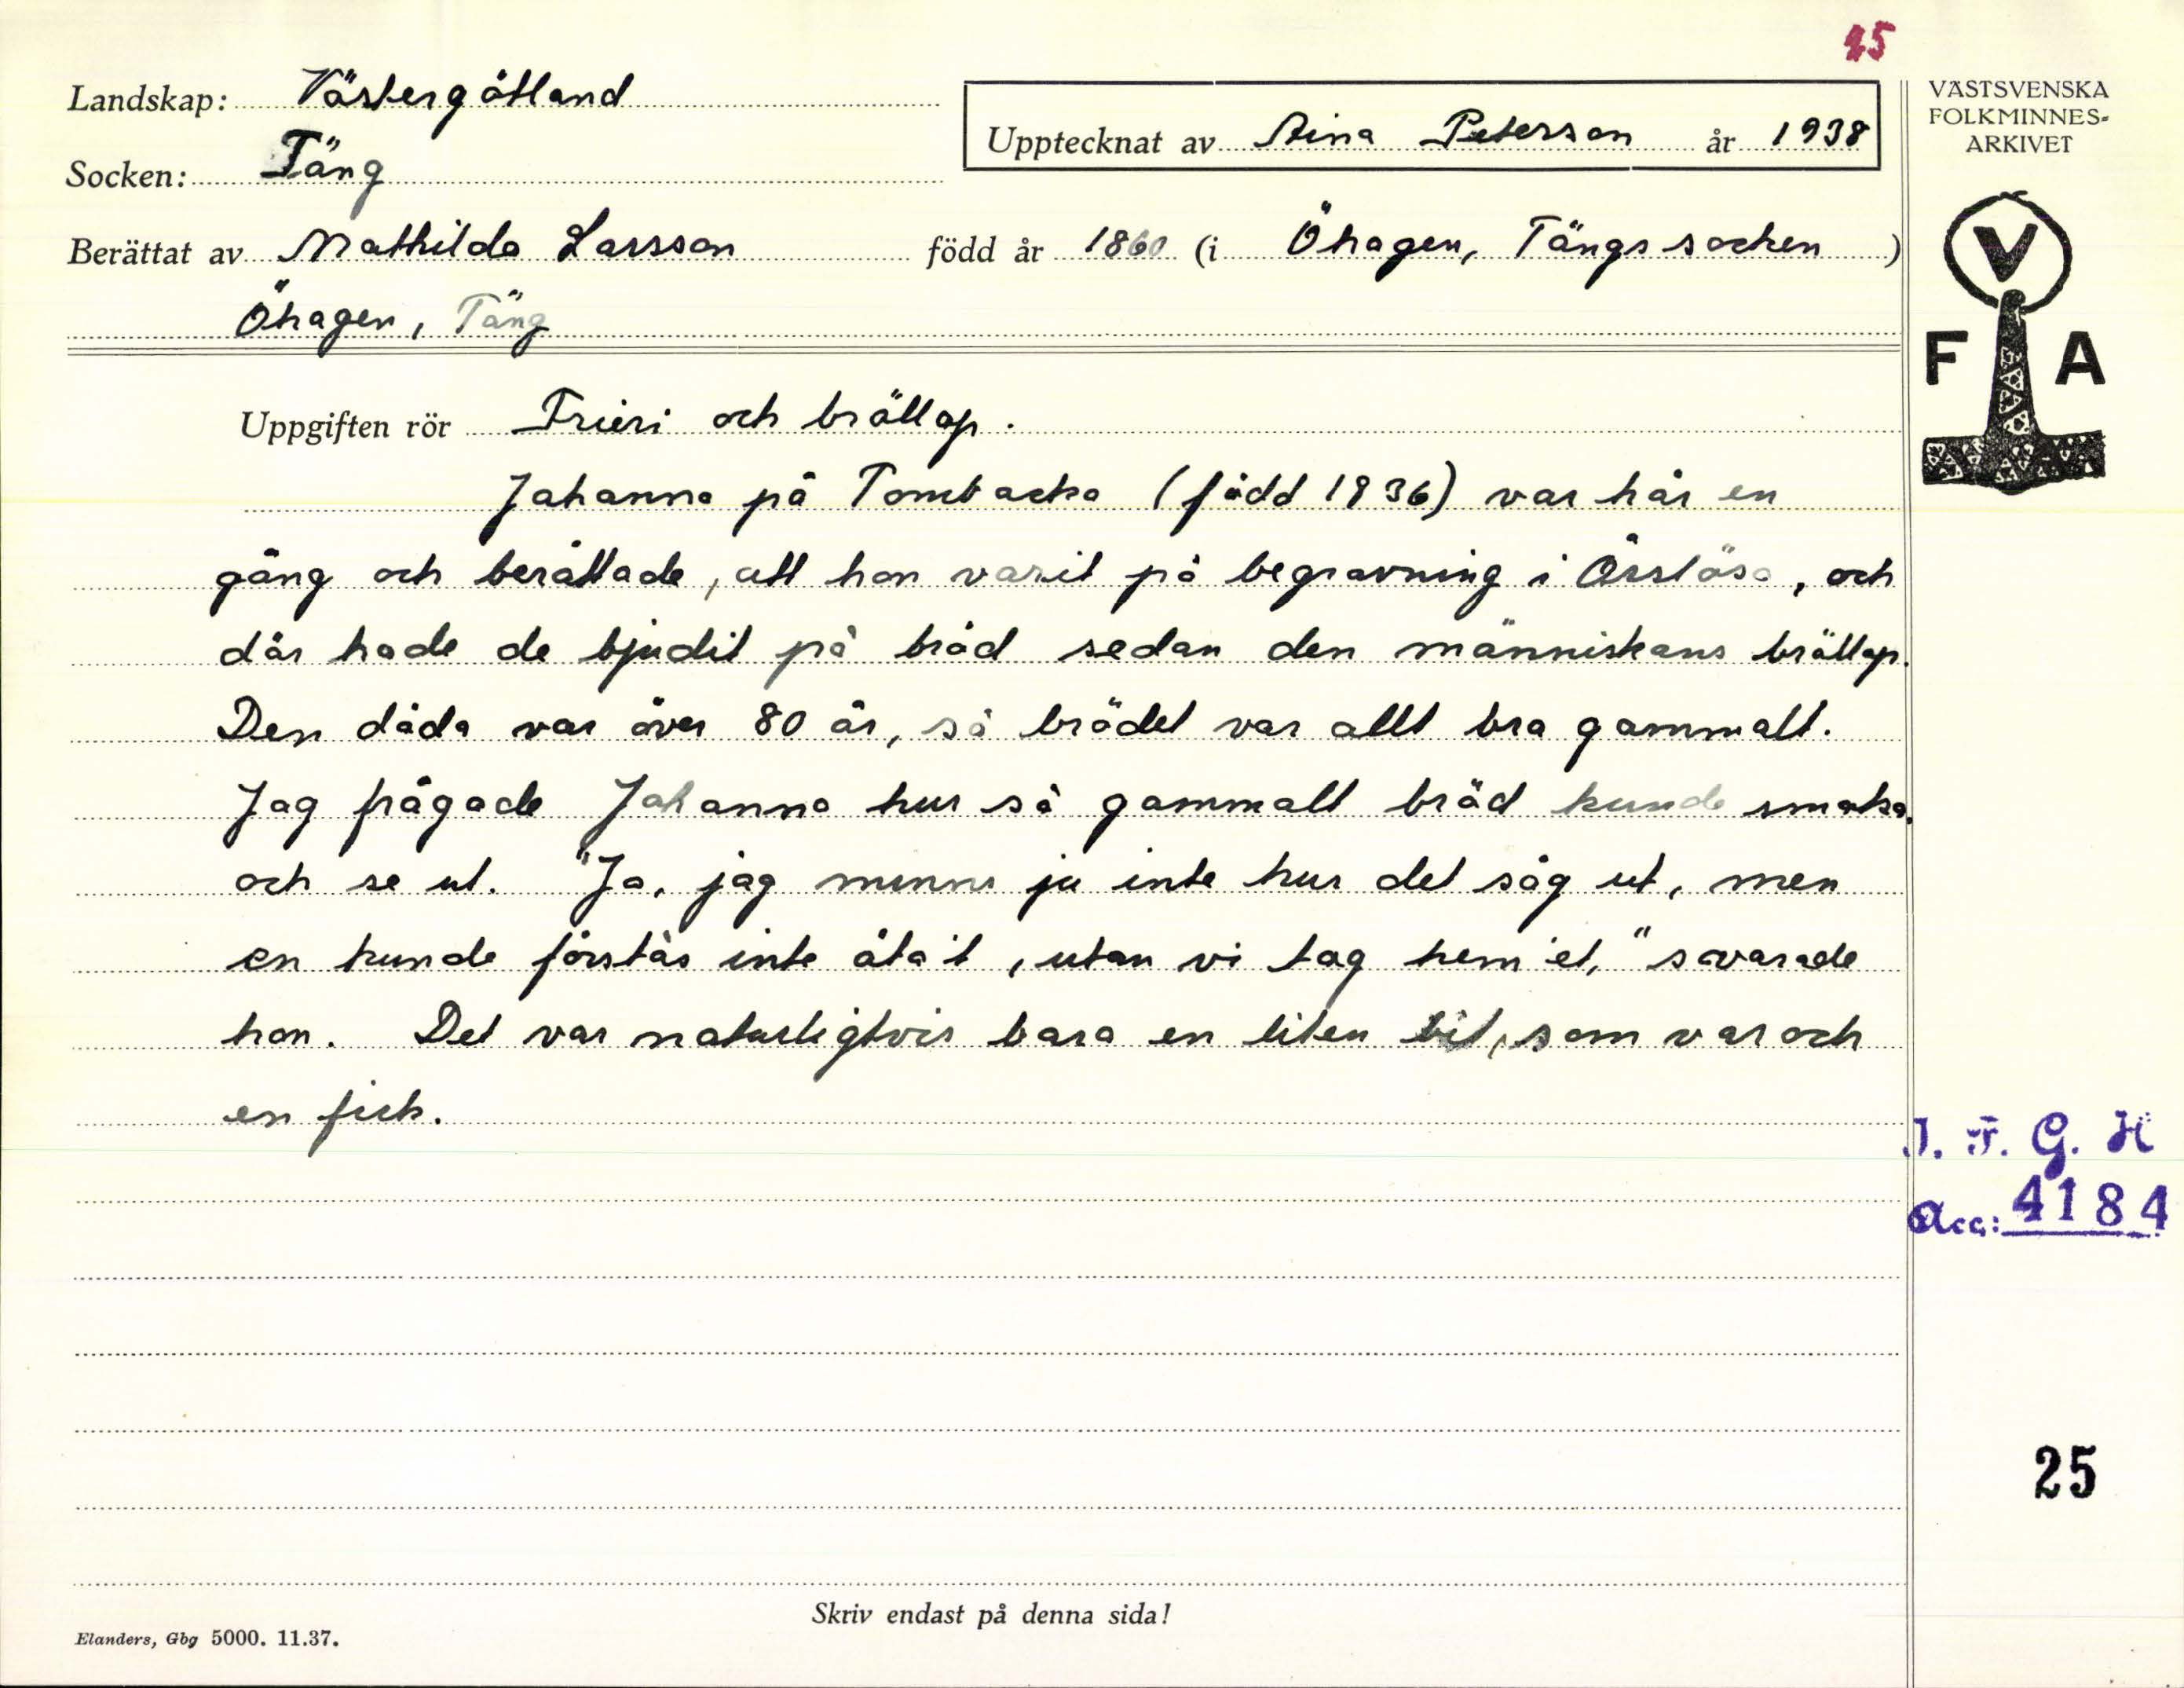 45
Landskap: Västergötland
Upptecknat av Aina Peterson år 1938
VÄSTSVENSKA
FOLKMINNES-
ARKIVET
Socken: Täng
Berättat av Mathilda Larsson född år 1860 (i Öhagen, Tängs socken )
Öhagen, Täng
V
F A
Uppgiften rör Frieri och bröllop.
Johanna på Tombacka (född 1836) var här en
gång och berättade, att hon varit på begravning i Örslösa, och
där hade de bjudit på bröd sedan den människans bröllop.
Den döda var över 80 år, så brödet var allt bra gammalt.
Jag frågade Johanna hur så gammalt bröd kunde smaka
och se ut. "Ja, jag minns ju inte hur det såg ut, men
en kunde förstås inte äta't, utan vi tog hem'et," svarade
hon. Det var naturligtvis bara en liten bit, som var och
en fick.
I. F. G. H
Acc: 4184
25
Skriv endast på denna sida!
Elanders, Gbg 5000. 11.37.